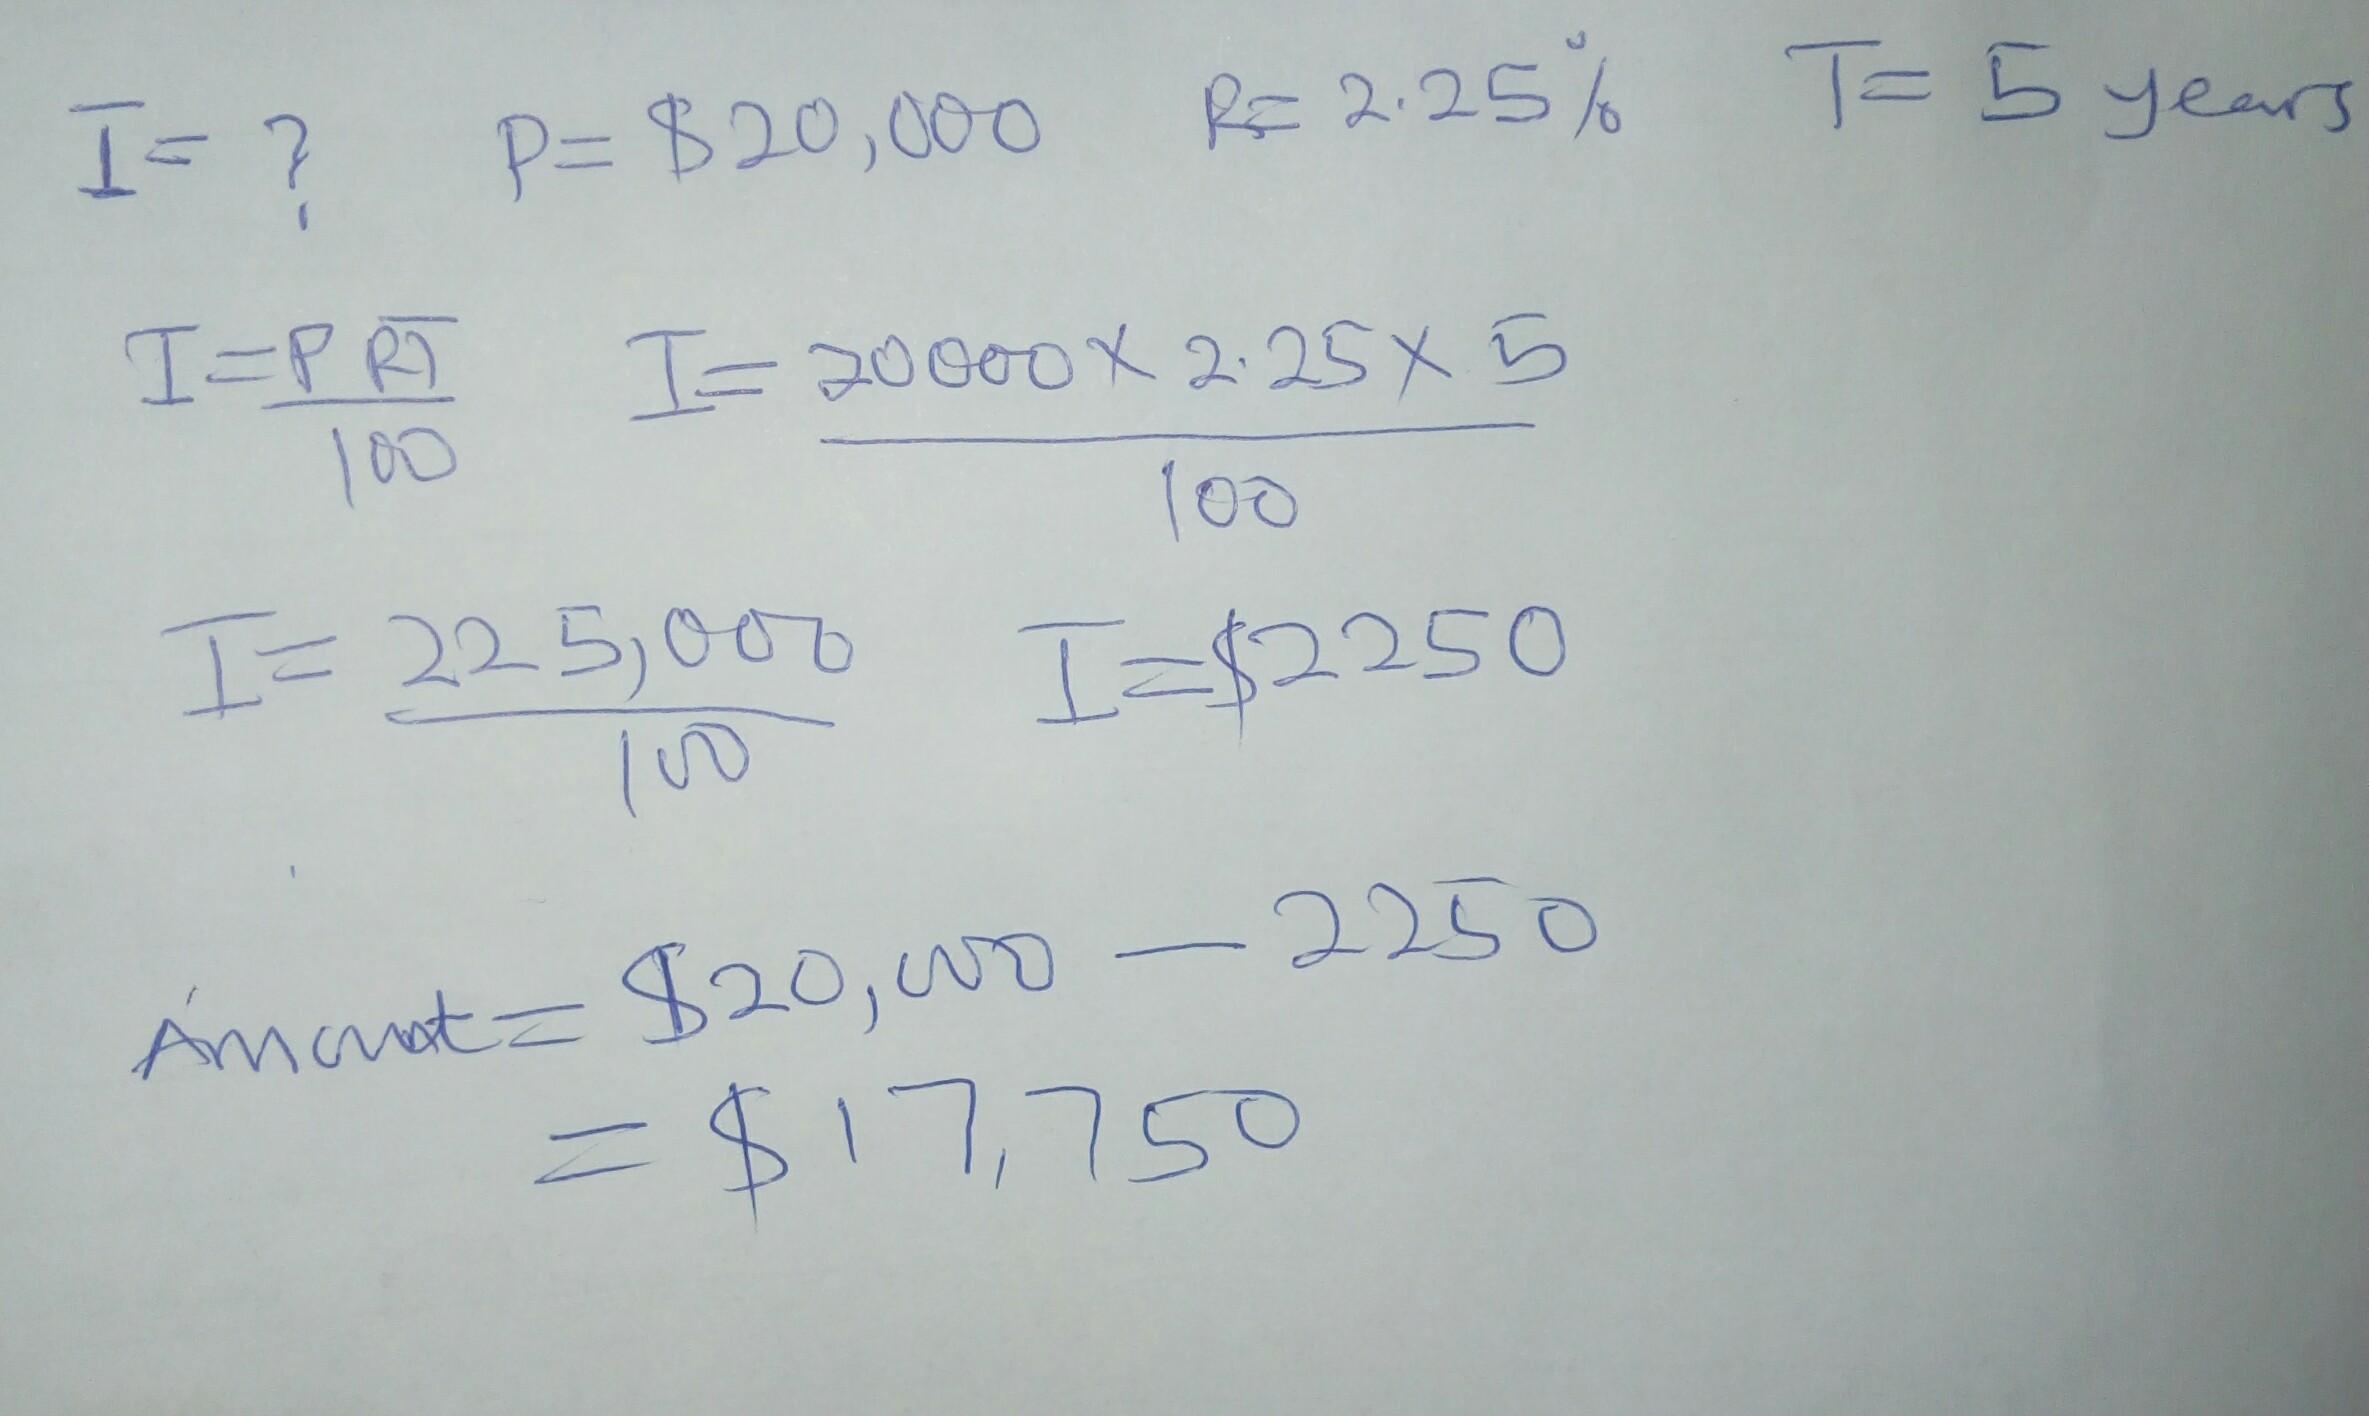 I = ? P = $20,000 R = 2.25% T = 5 years
I = PRT I = 20000 x 2.25 x 5
100 100
I = 225,000 I = $2250
100
Amount = $20,000 - 2250
= $17,750